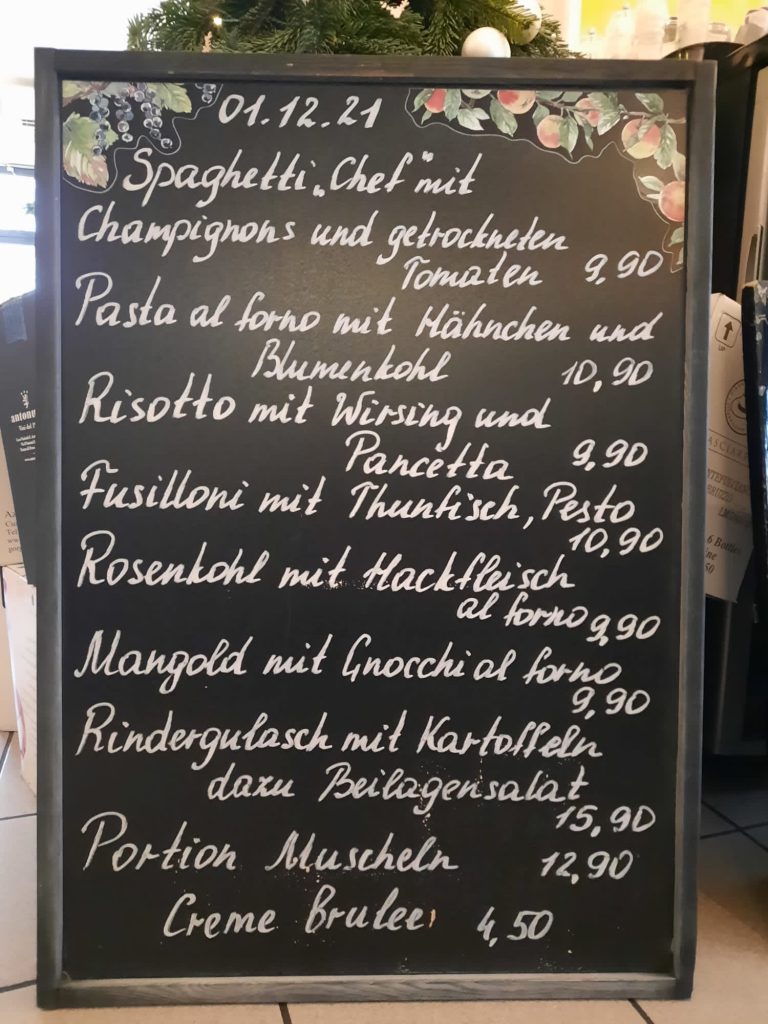 01.12.21
Spaghetti „Chef" mit
Champignons und getrockneten
Tomaten 9,90
Pasta al forno mit Hähnchen und
Blumenkohl 10,90
Risotto mit Wirsing und
Pancetta 9,90
Fusilloni mit Thunfisch, Pesto
10,90
Rosenkohl mit Hackfleisch
al forno 9,90
Mangold mit Gnocchi al forno
9,90
Rindergulasch mit Kartoffeln
dazu Beilagensalat
15,90
Portion Muscheln 12,90
Creme Brulee 4,50